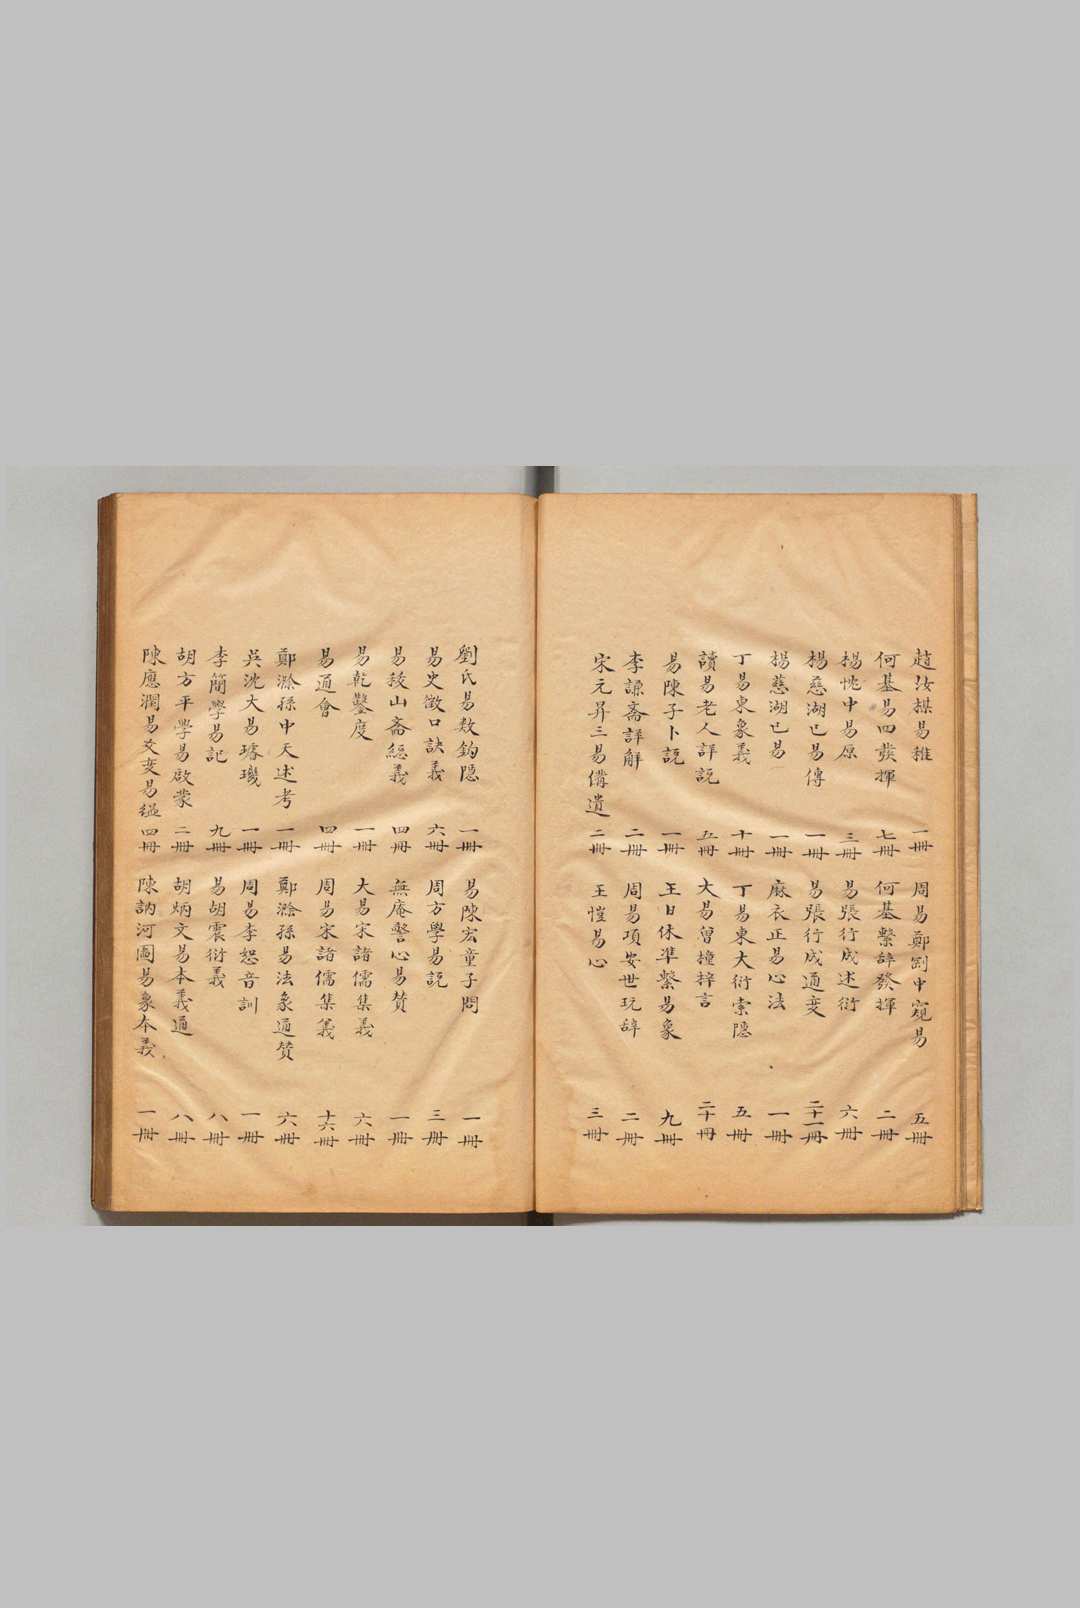 趙汝楳易雅 一冊 周易鄭剛中窺易 五冊
何基易四發揮 七冊 何基繫辞發揮 二冊
楊恱中易原 三冊 易張行成述衍 六冊
楊慈湖已易傳 一冊 易張行成通变 二十一冊
楊慈湖已易 一冊 麻衣正易心法 一冊
丁易東象義 十冊 丁易東大衍索隱 五冊
讀易老人詳說 五冊 大易曾橦梓言 二十冊
易陳子卜說 一冊 王日休準繫易象 九冊
李謙斋詳解 二冊 周易項安世玩辞 二冊
宋元昇三易備遺 二冊 王愷易心 三冊
劉氏易数鈎隠 一冊 易陳宏童子問 一冊
易史徵口訣義 六冊 周方學易說 三冊
易稜山斋緫義 四冊 無庵警心易贊 一冊
易乾鑿度 一冊 大易宋諸儒集義 六冊
易通會 四冊 周易宋諸儒集義 十六冊
鄭滁孫中天述考 一冊 鄭滁孫易法象通贊 六冊
吳沈大易璿璣 一冊 周易李恕音訓 一冊
李簡學易記 九冊 易胡震衍義 八冊
胡方平學易啟蒙 二冊 胡炳文易本義通 八冊
陳應潤易爻变易緼 四冊 陳訥河圖易象本義 一冊